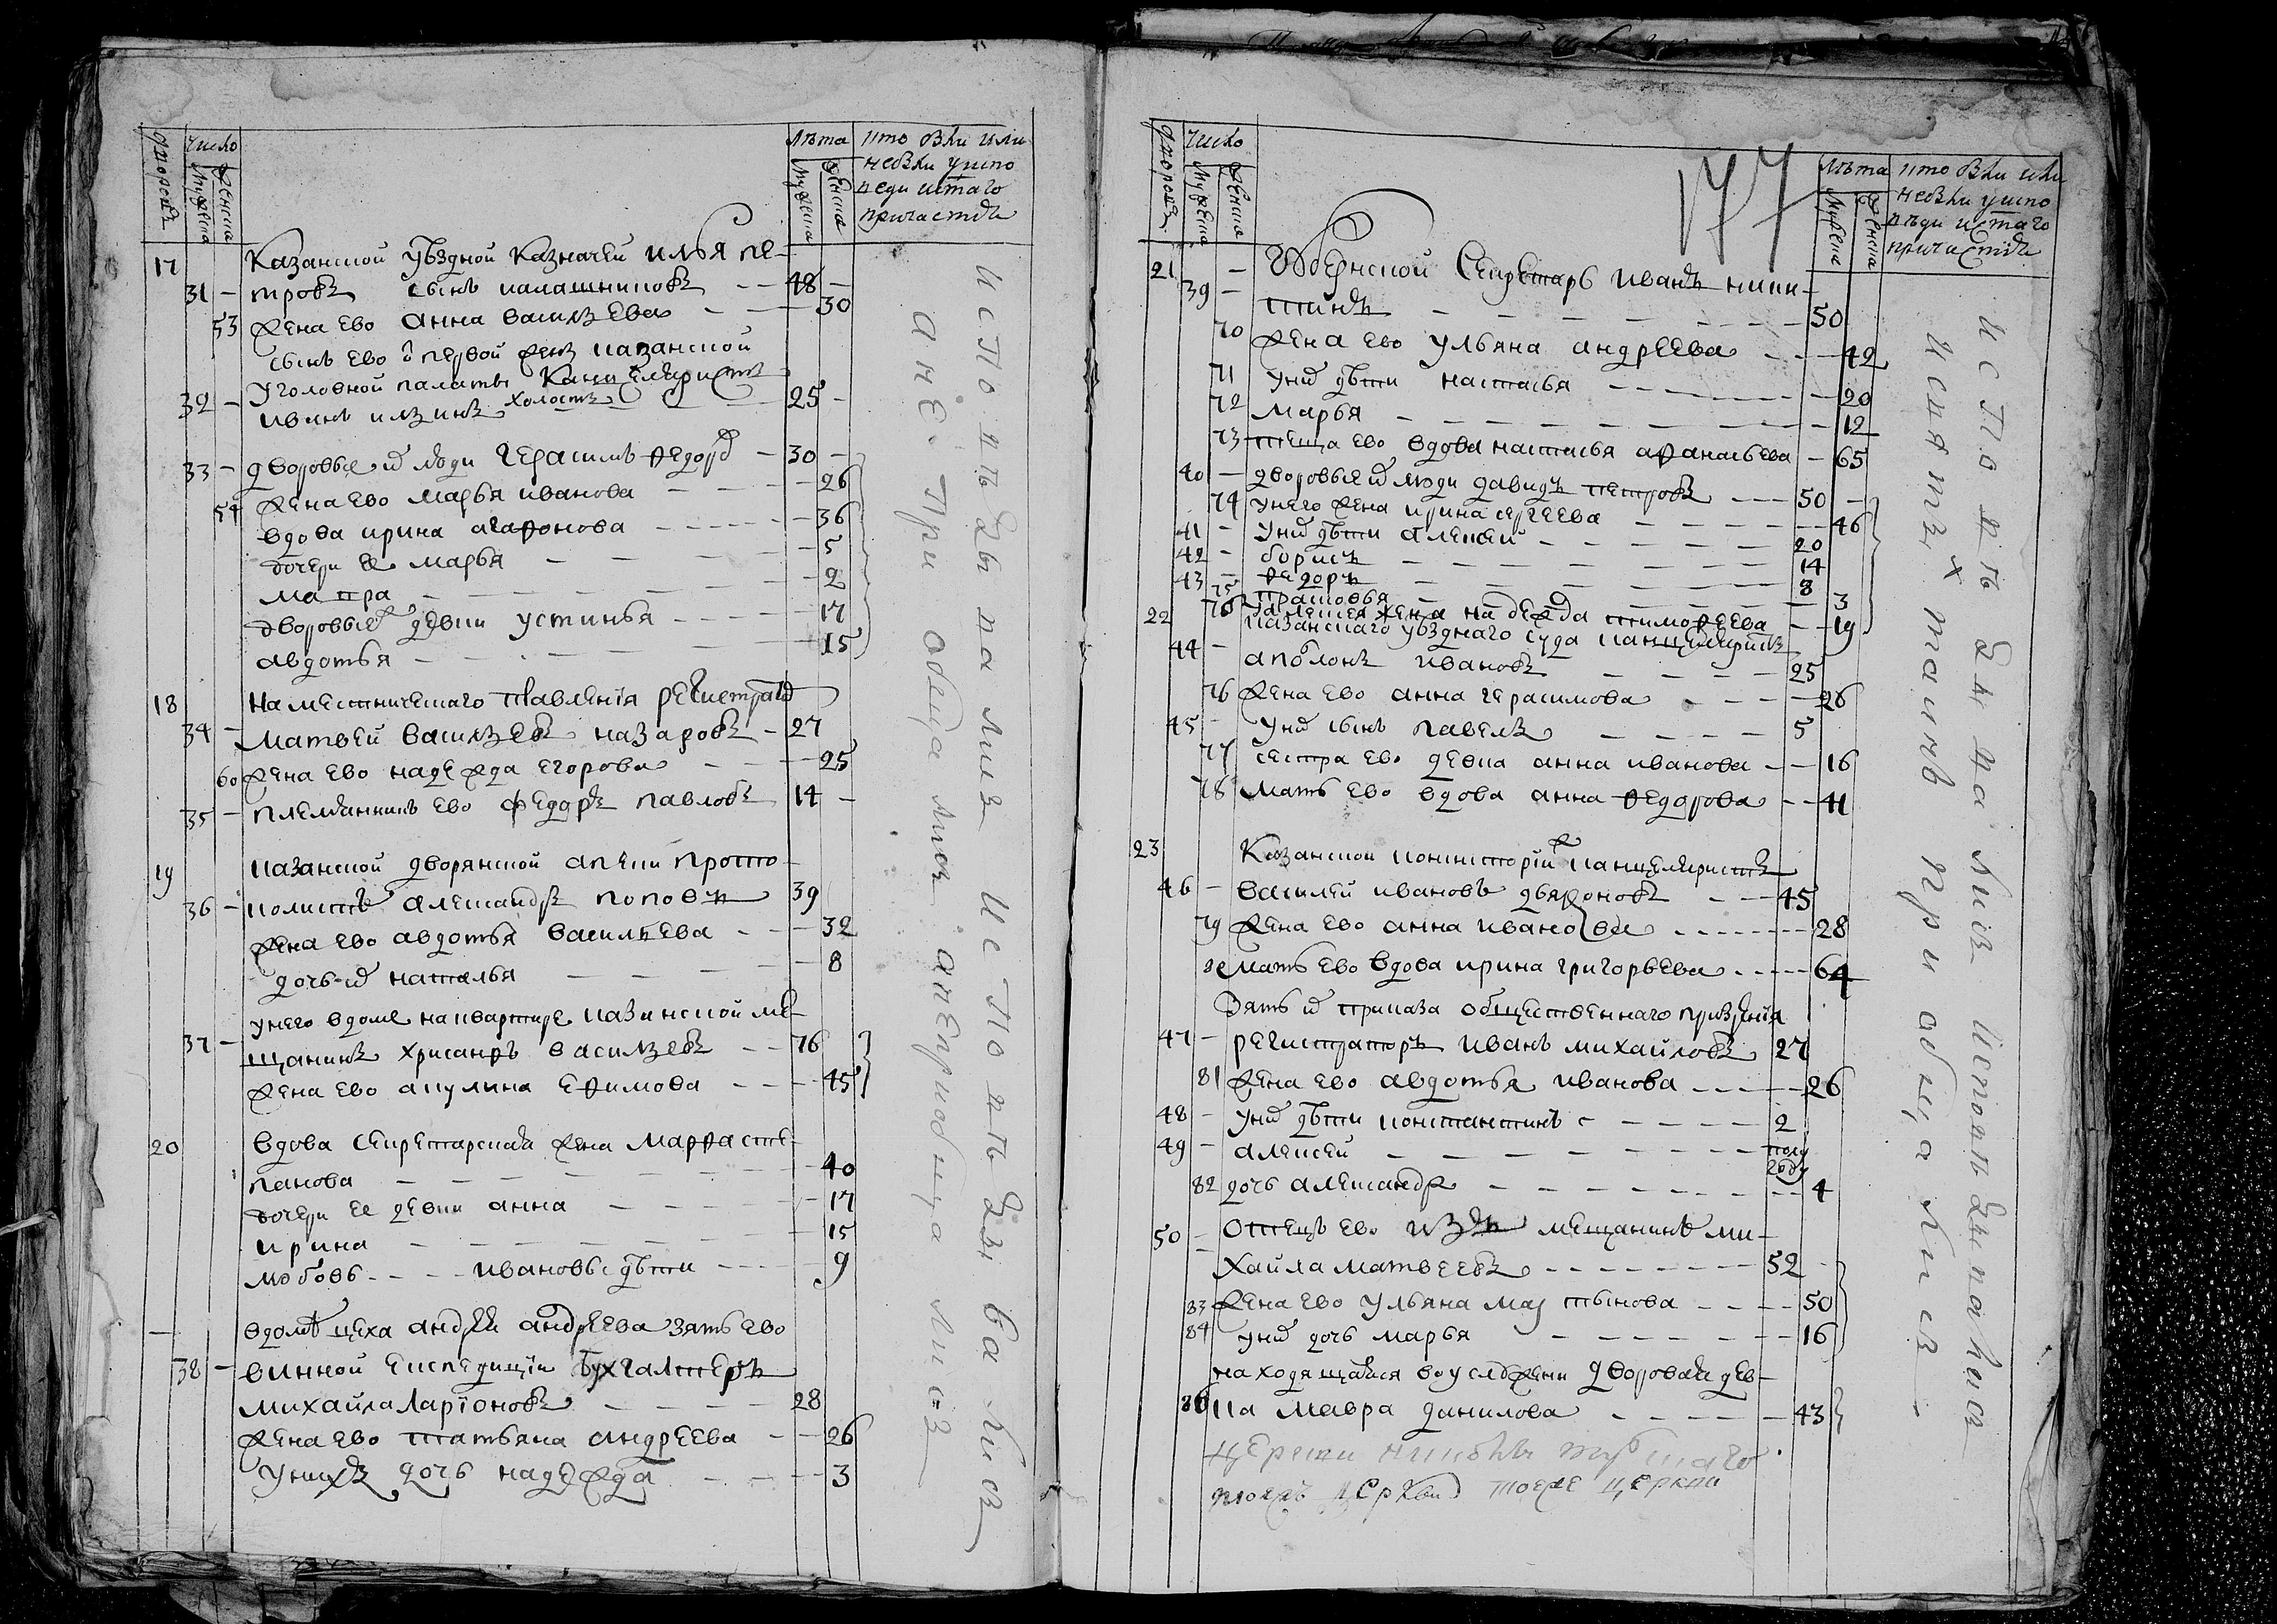 дворовъ
Число
мужеска
женска
Лѣта
мужеска
женска
кто были или
небыли у испо
веди истаго
причастия
17 Казанской уѣздной казначей илья пе-
31 - тровъ сынъ калашниковъ - - 48 -
53 жена ево анна васильева - - 30
сынъ ево ѿ первой жены казанской
уголовной палаты канцеляристъ
холостъ
32 - иванъ ильинъ - - 25 -
33 - дворовые их люди герасимъ федоро - 30 -
54 жена ево марья иванова - - - 26
вдова ирина агафонова - - - - 36
дочери ее марья - - - - 5
мавра - - - - - 2
дворовые девки устинья - - - - 17
авдотья - - - - - 15
18 Наместническаго правления регистрато
34 - матвей васильевъ назаровъ - 27
60 жена ево надежда егорова - - - 25
35 - племянникъ ево федоръ павловъ 14 -
19 казанской дворянской опеки прото-
36 - колистъ александръ поповъ 39
жена ево авдотья васильева - - - 32
дочь их наталья - - - - 8
унего вдоме наквартире казанской ме-
37 - щанинъ хрисанфъ васильевъ - - 76
жена ево акулина ефимова - - - - 45
20 вдова секретарская жена марфа сте-
панова - - - - - - 40
дочери ее девки анна - - - - 17
ирина - - - - - 15
любовь - - - - ивановы дѣти - - - - 9
вдомѣ цеха андрея андреева зять ево
38 - винной експедиции бухгалтеръ
михайла ларионовъ - - - - 28
жена ево татьяна андреева - - 26
у них дочь надежда - - - - 3
исповѣдывались исповѣдывались
а не приобщались а не приобщались
177
дворовъ
Число
мужеска
женска
Лѣта
мужеска
женска
кто были или
небыли у испо
вѣди истаго
причастия
21 - Губернской секретарь иванъ ники-
39 - тинъ - - - - - - 50
70 жена ево ульяна андреева - - - 42
71 уних дѣти настасья - - - - - 20
72 марья - - - - - - - 12
73 теща ево вдова настасья афанасьева - 65
40 - дворовые их люди давидъ петровъ - - - 50 -
74 унего жена ирина сергеева - - - - - 46
41 - уних дѣти алексей - - - - - 20
42 - борисъ - - - - - - 14
43 - федоръ - - - - - 8
75 прасковья - - - - - 3
76 у алексея жена надежда тимофеева - - 19
22 казанскаго уѣзднаго суда канцеляристъ
44 - аполонъ ивановъ - - - - 25
76 жена ево анна герасимова - - - - 26
45 - уних сынъ павелъ - - - - 5
77 сестра ево девка анна иванова - - 16
78 мать ево вдова анна федорова - - 41
23 Казанской консистории канцеляристъ
46 - василей ивановъ дьяконовъ - - - 45
79 жена ево анна иванова - - - - - - 28
80 мать ево вдова ирина григорьева - - - - 64
зять их приказа общественнаго призрѣния
47 - регистраторъ иванъ михайловъ 27
81 жена ево авдотья иванова - - - - 26
48 - уних дѣти константинъ - - - - 2
49 - алексей - - - - - - - полу
году
82 дочь александра - - - - - - - 4
50 - отецъ ево мещанинъ ми-
хайла матвеевъ - - - - - - - - 52
83 жена ево ульяна мартынова - - - - 50
84 уних дочь марья - - - - - 16
находящаяся воуслужении дворовая дев-
86 ка мавра данилова - - - - - 43
церкви
церкви тоеже церкви
исповѣдывались исповѣдывались
и святыхъ таинъ приобщались -